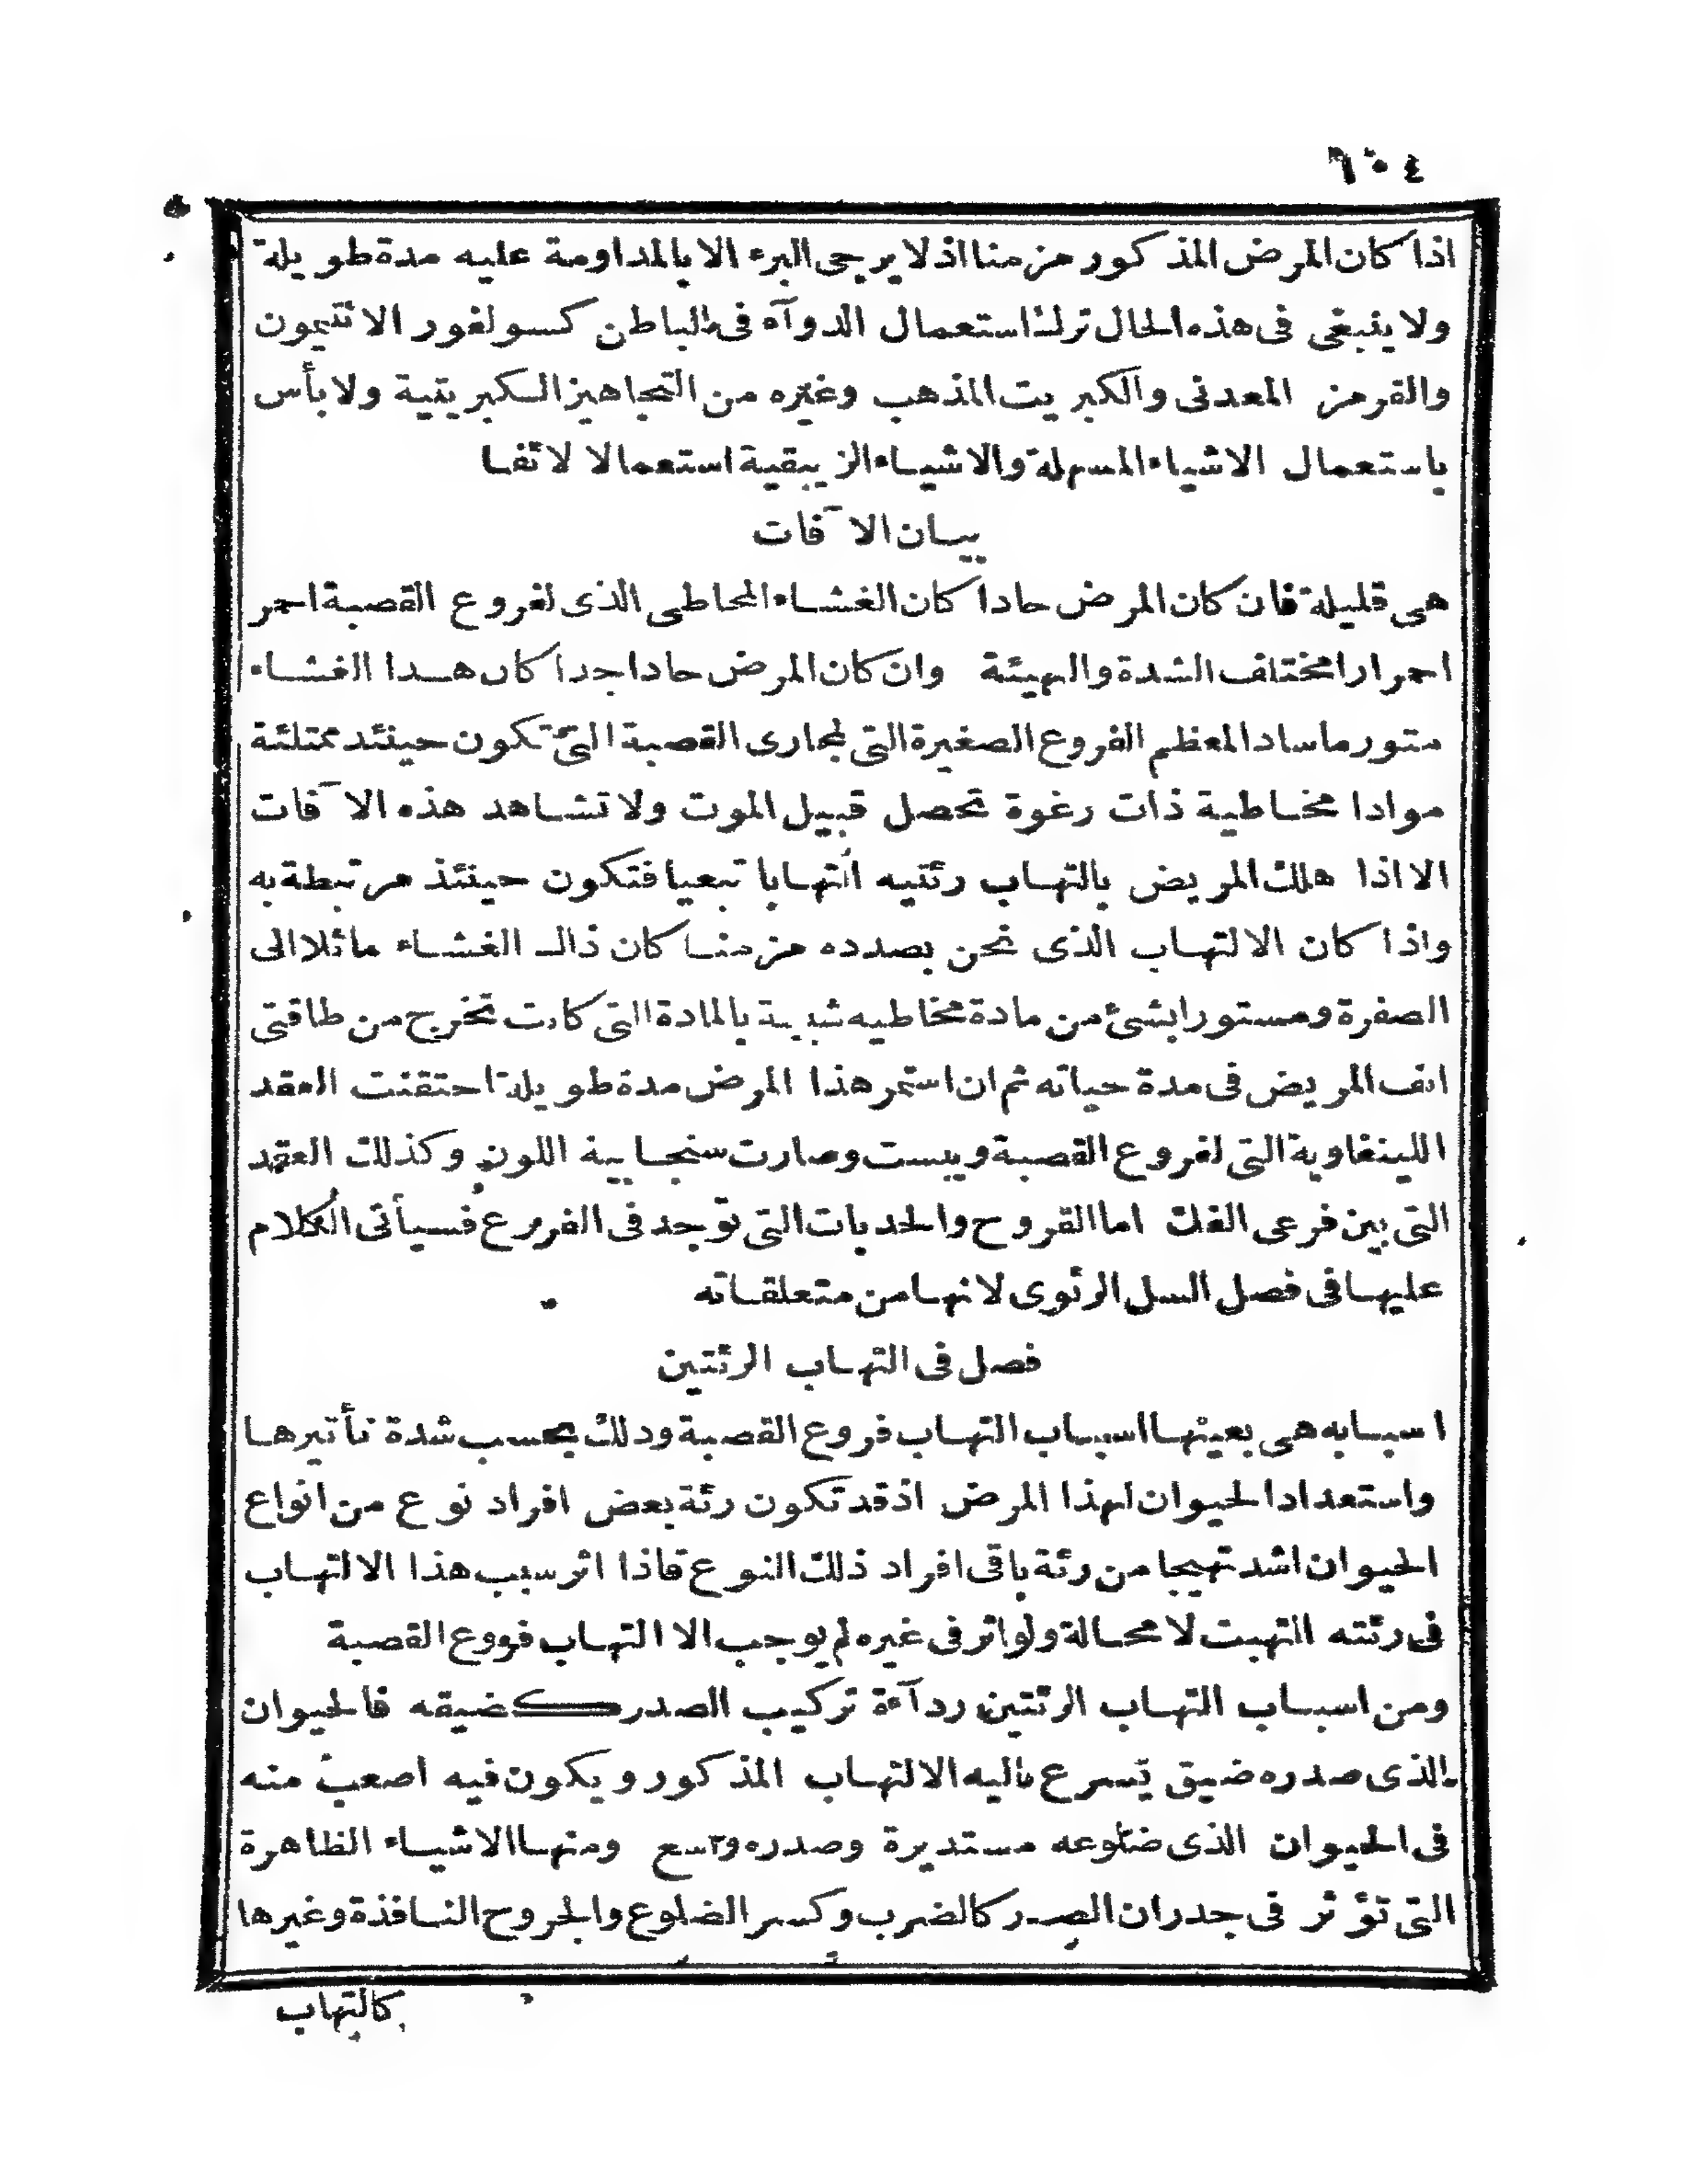 ٦٠٤
اذا كان المرض المذكور مزمنا اذ لا يرجى البرء الا بالمداومة عليه مدة طويلة
ولا ينبغى فى هذه الحال ترك استعمال الدوآء فى الباطن كسولفور الانتيمون
والقرمز المعدنى والكبريت المذهب وغيره من التجاهيز الكبريتية ولا بأس
باستعمال الاشياء المسهلة والاشياء الزيبقية استعمالا لائقا
بيان الآفات
هى قليلة فان كان المرض حادا كان الغشاء المخاطى الذى لفروع القصبة احمر
احمرارا مختلف الشدة والهيئة وان كان المرض حادا جدا كان هذا الغشاء
متورما سادا لمعظم الفروع الصغيرة التى لمجارى القصبة التى تكون حينئذ ممتلئة
موادا مخاطية ذات رغوة تحصل قبيل الموت ولا تشاهد هذه الآفات
الا اذا هلك المريض بالتهاب رئتيه التهابا تبعيا فتكون حينئذ مرتبطة به
واذا كان الالتهاب الذى نحن بصدده مزمنا كان ذالك الغشاء مائلا الى
الصفرة ومستورا بشئ من مادة مخاطيه شبيهة بالمادة التى كانت تخرج من طاقتى
انف المريض فى مدة حياته ثم ان استمر هذا المرض مدة طويلة احتقنت العقد
اللينفاوية التى لفروع القصبة ويبست وصارت سنجابية اللون وكذلك العقد
التى بين فرعى الفك اما القروح والحدبات التى توجد فى الفروع فسيأتى الكلام
عليها فى فصل السل الرئوى لانها من متعلقاته
فصل فى التهاب الرئتين
اسبابه هى بعينها اسباب التهاب فروع القصبة وذلك بحسب شدة تأثيرها
واستعداد الحيوان لهذا المرض اذ قد تكون رئة بعض افراد نوع من انواع
الحيوان اشد تهيجا من رئة باقى افراد ذلك النوع فاذا اثر سبب هذا الالتهاب
فى رئته التهبت لا محالة ولو اثر فى غيره لم يوجب الا التهاب فروع القصبة
ومن اسباب التهاب الرئتين ردآءة تركيب الصدر كضيقه فالحيوان
الذى صدره ضيق يسرع اليه الالتهاب المذكور ويكون فيه اصعب منه
فى الحيوان الذى ضلوعه مستديرة وصدره واسع ومنها الاشياء الظاهرة
التى تؤثر فى جدران الصدر كالضرب وكسر الضلوع والجروح النافذة وغيرها
كالتهاب